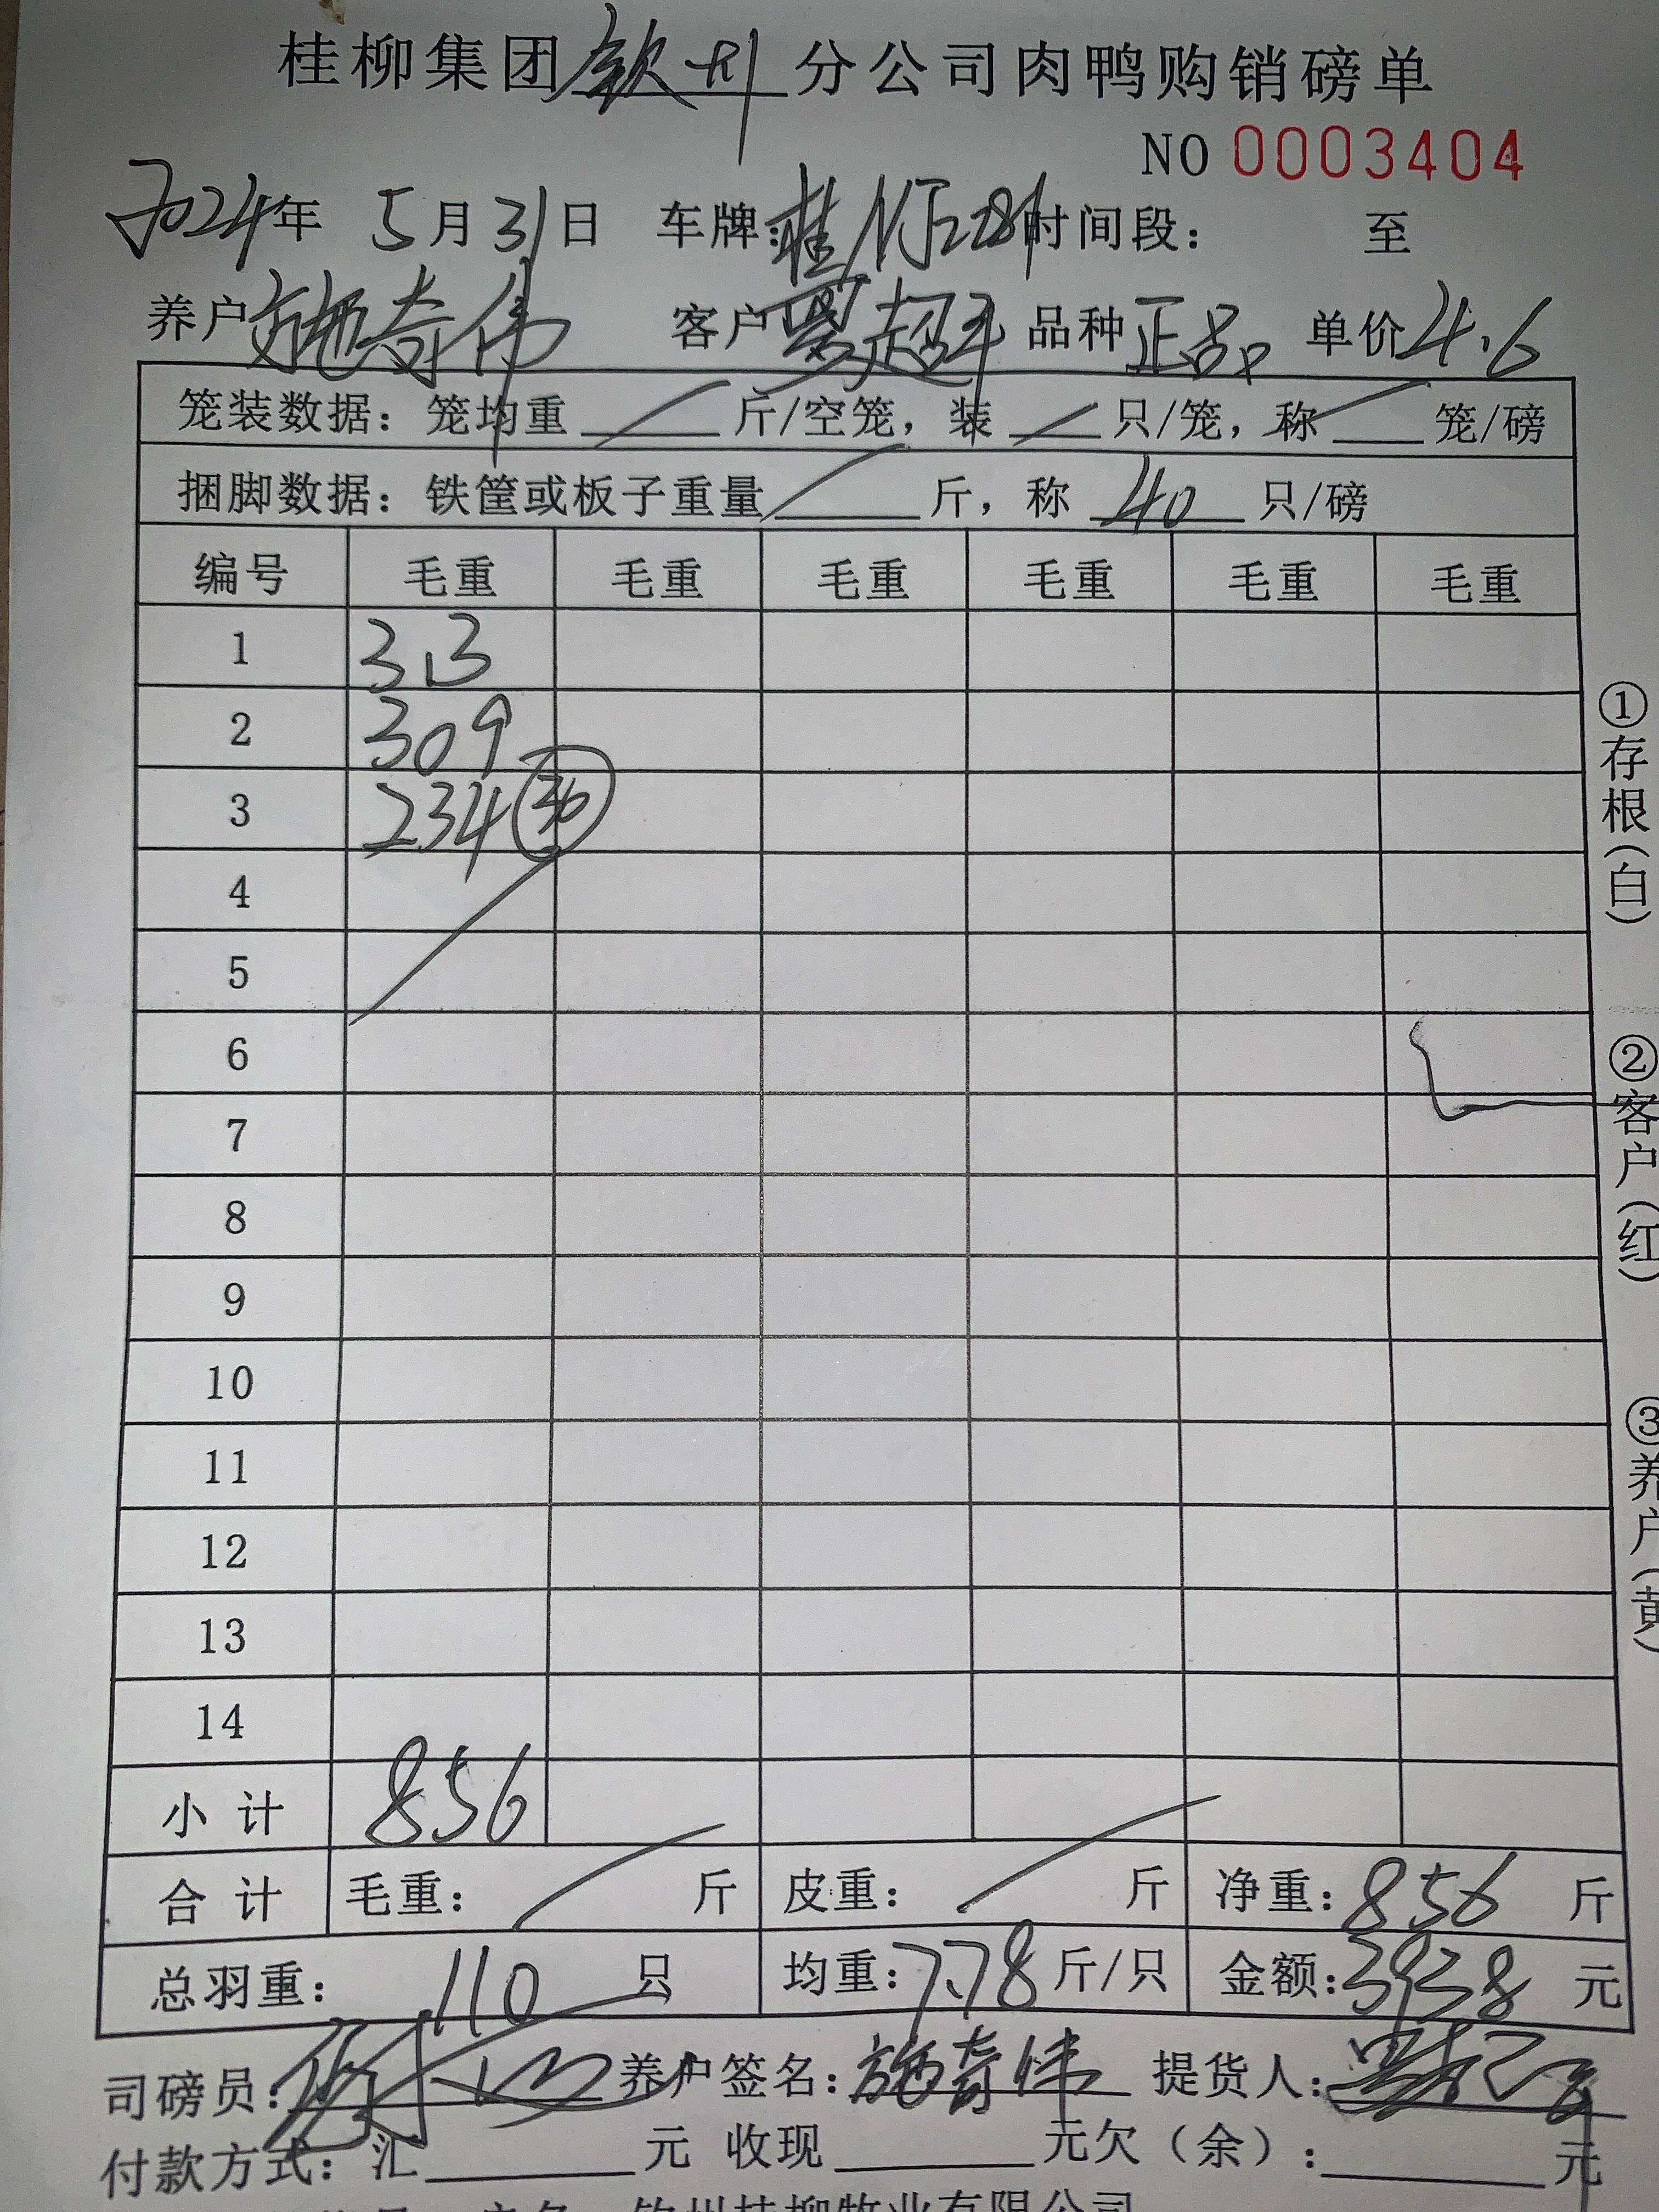 桂柳集团钦州分公司肉鸭购销磅单
NO 0003404
2024年 5月31日 车牌:桂 时间段: 至
养户 施奇伟 客户 品种 正品 单价 4.6
笼装数据: 笼均重 斤/空笼, 装 只/笼, 称 笼/磅
捆脚数据: 铁筐或板子重量 斤, 称 40 只/磅
编号 毛重 毛重 毛重 毛重 毛重 毛重
1 313
2 309
3 234 30
4
5
6
7
8
9
10
11
12
13
14
小计 856
合计 毛重: 斤 皮重: 斤 净重: 856 斤
总羽重: 110 只 均重: 7.78 斤/只 金额: 3938 元
司磅员: 养户签名: 施奇伟 提货人:
付款方式: 汇 元 收现 元欠(余): 元
钦州桂柳牧业有限公司
①存根(白)
②客户(红)
③养户(黄)